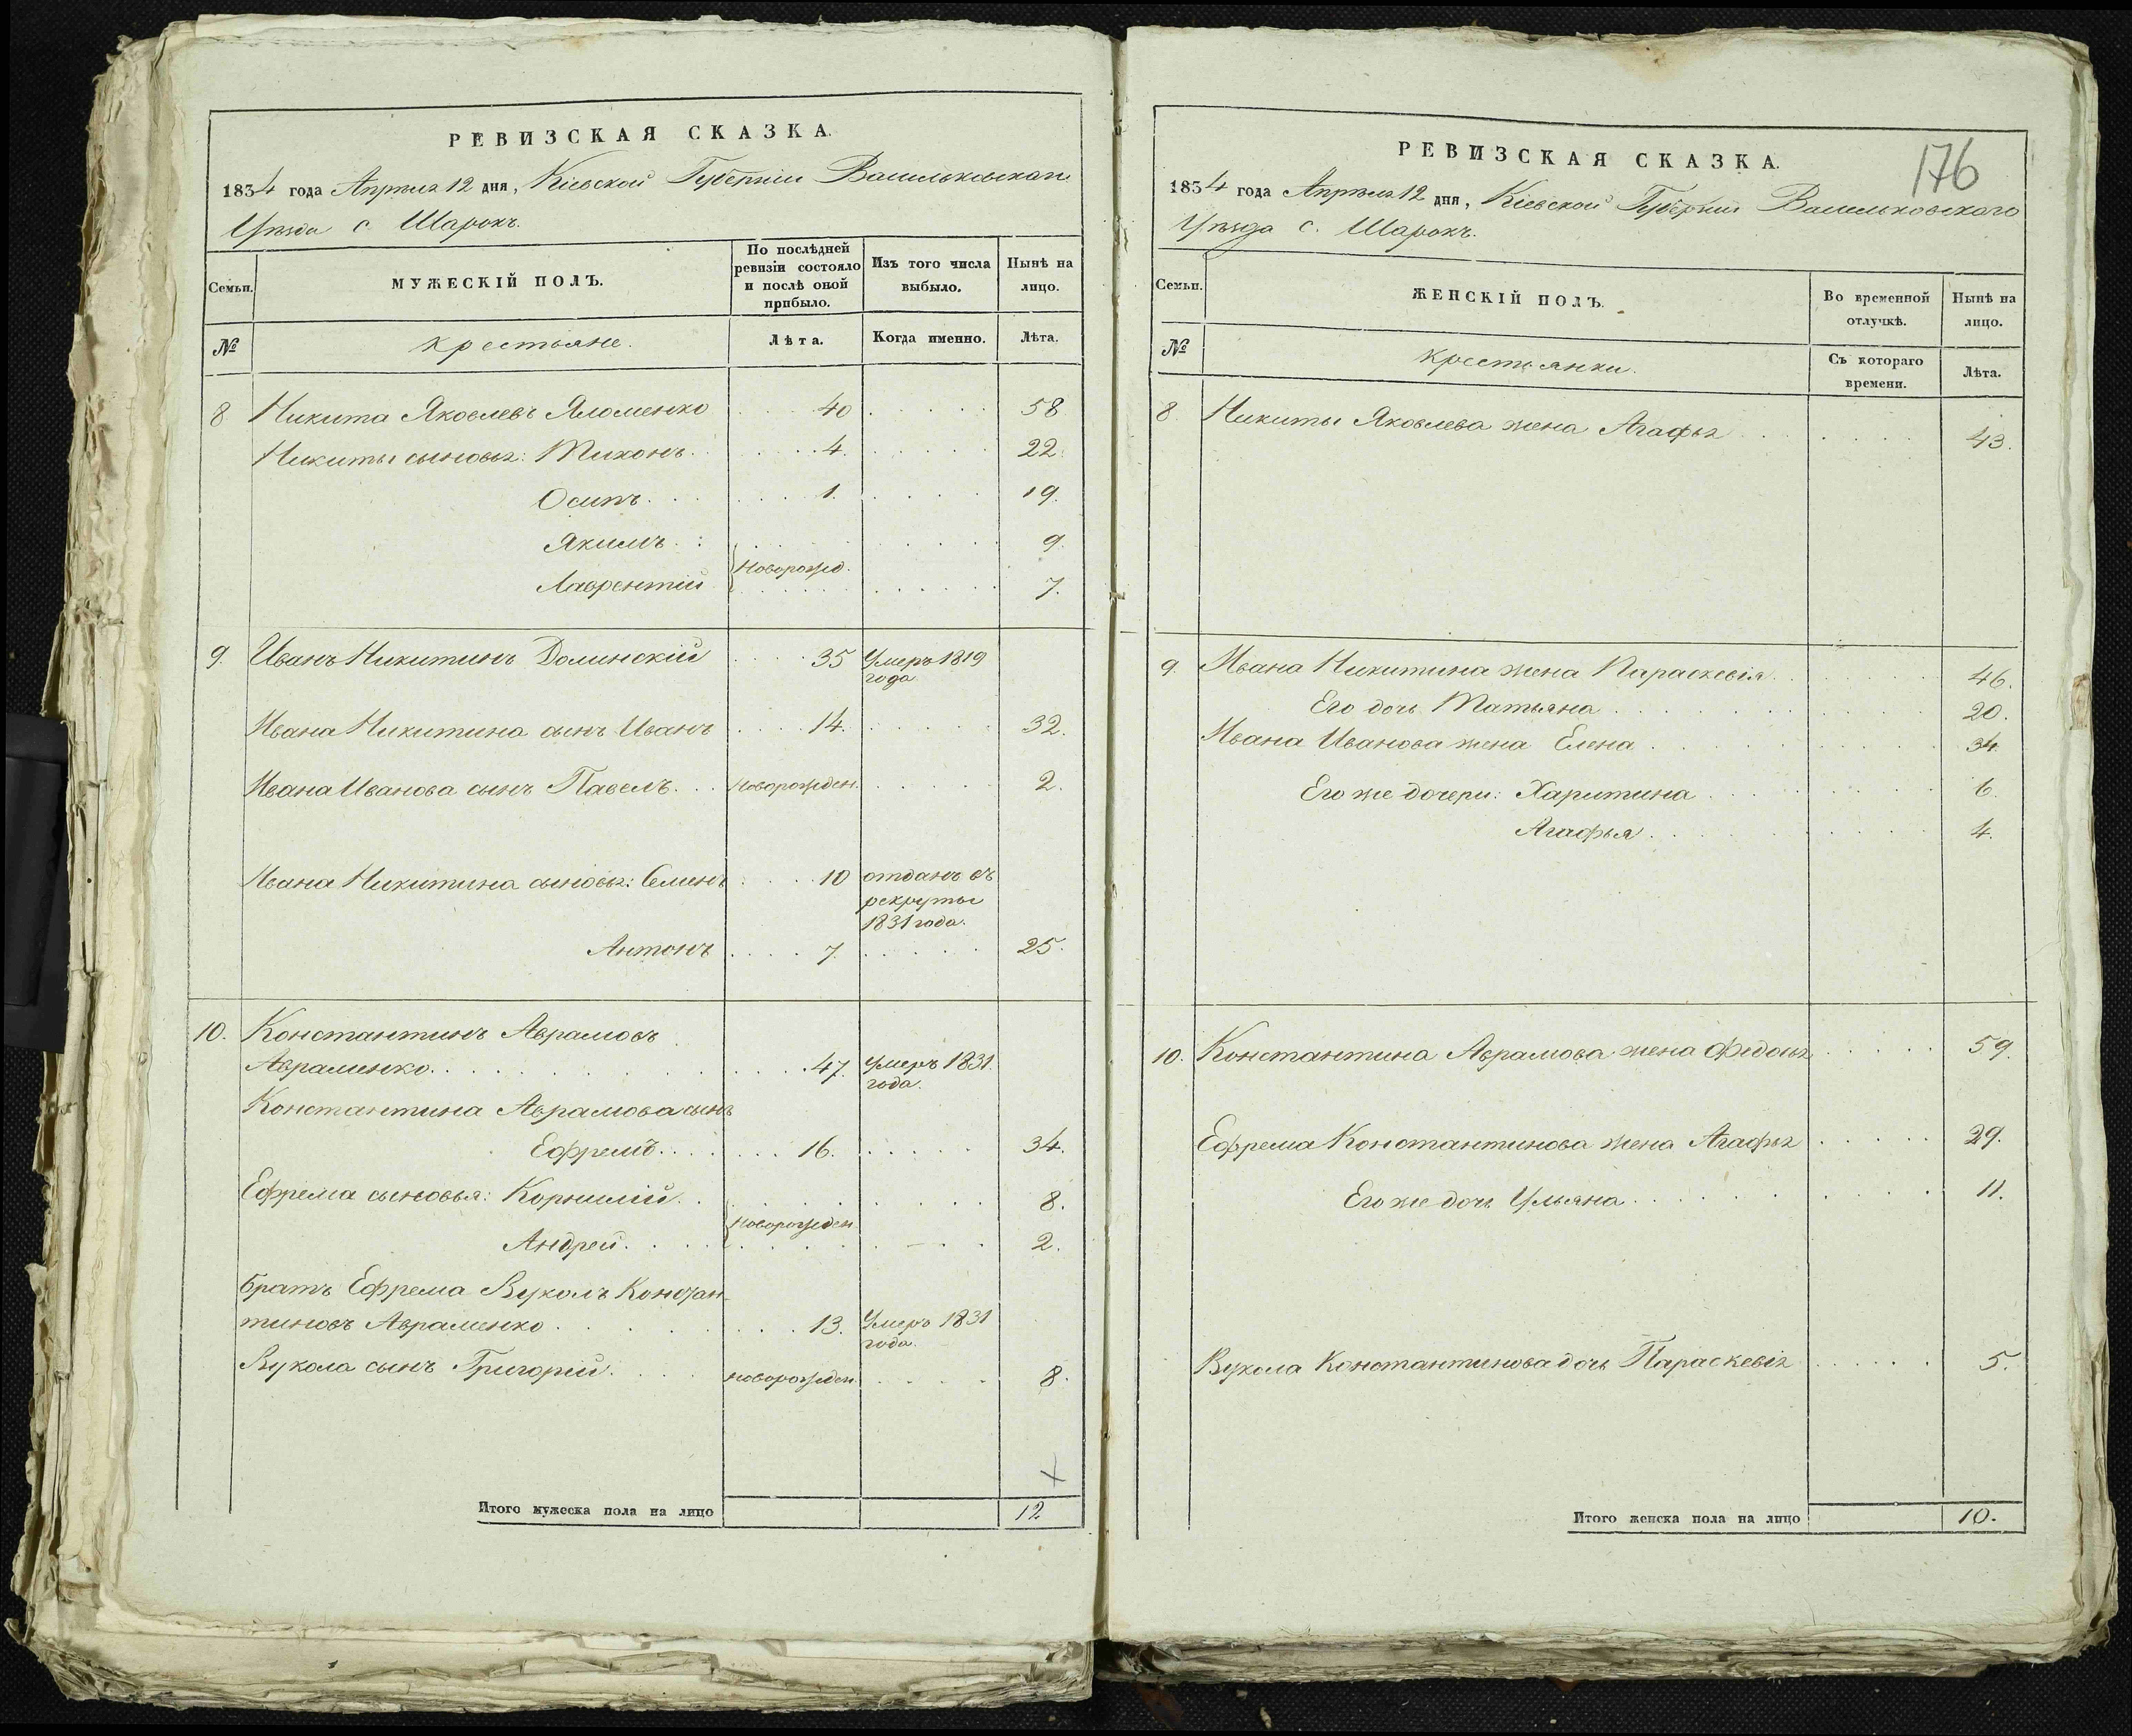 РЕВИЗСКАЯ СКАЗКА.
1834 года Апрѣля 12 дня, Кіевской Губерніи Васильковскаго
Уѣзда с. Шарокъ.
Семьи.
МУЖЕСКІЙ ПОЛЪ.
По послѣдней ревизіи состояло и послѣ оной прибыло.
Изъ того числа выбыло.
Нынѣ на лицо.
№
Крестьяне.
Лѣта.
Когда именно.
Лѣта.
8 Никита Яковлевъ Яломенко 40 58
Никиты сыновья: Тихонъ 4. 22.
Осипъ 1. 19.
Якимъ 9.
Новорожд.
Лаврентій 7.
9. Иванъ Никитинъ Долинскій 35 Умеръ 1819
года
Ивана Никитина сынъ Иванъ 14. 32.
Ивана Иванова сынъ Павелъ новорожден. 2.
Ивана Никитина сыновья: Семенъ 10 отданъ въ
рекруты
1831 года.
Антонъ 7. 25.
10. Константинъ Аврамовъ
Авраменко 47. Умеръ 1831.
года.
Константина Аврамова сынъ
Ефремъ 16. 34.
Ефрема сыновья: Корнилій 8.
новорожден
Андрей 2.
братъ Ефрема Вуколъ Констан-
тиновъ Авраменко 13. Умеръ 1831
года.
Вукола сынъ Григорій новорожден. 8.
Итого мужеска пола на лицо 12
176
РЕВИЗСКАЯ СКАЗКА.
1834 года Апрѣля 12 дня, Кіевской Губерніи Васильковскаго
Уѣзда с. Шарокъ.
Семьи.
ЖЕНСКІЙ ПОЛЪ.
Во временной отлучкѣ.
Нынѣ на лицо.
№
Крестьянки.
Съ котораго времени.
Лѣта.
8. Никиты Яковлева жена Агафья 43.
9. Ивана Никитина жена Параскевія 46.
Его дочь Татьяна 20.
Ивана Иванова жена Елена 34.
Его же дочери: Харитина 6.
Агафья 4.
10. Константина Аврамова жена Федосья 59.
Ефрема Константинова жена Агафья 29.
Его же дочь Ульяна 11.
Вукола Константинова дочь Параскевія 5.
Итого женска пола на лицо 10.